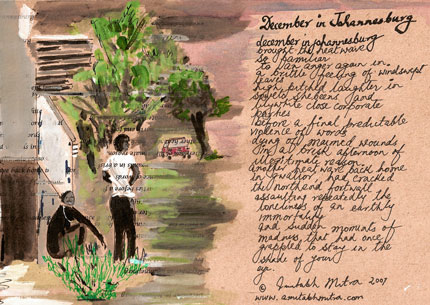 December in Johannesburg
december in johannesburg
brought the heat wave
so familiar
to van anger again in
a brittle feeling of windswept
leaves
high pitched laughter in
spurts, shebeens and
highrise close corporate
parties
before a final predictable
violence of words
dying of maimed wounds
that bright afternoon of
illegitimate reason.
another heat wave back home
in Gwalior, had cracked
the northend fort wall
assaulting repeatedly the
loneliness of an earthly
immortality
and sudden moments of
madness that had once
grappled to stay in the
shade of your
eye.
© Amitabh Mitra 2007
www.amitabhmitra.com